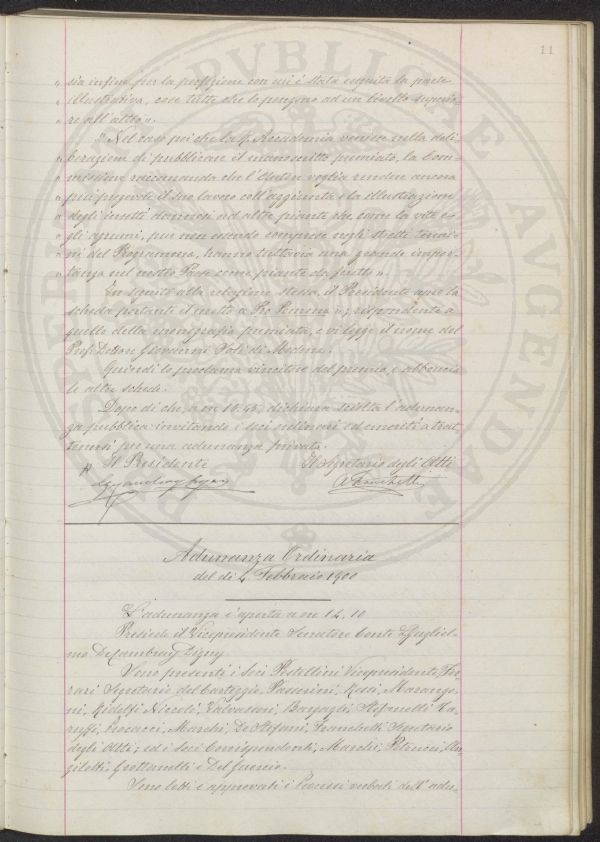 11
„ sia infine per la perfezione con cui è stata eseguita la parte
„ illustrativa, cose tutte che lo pongono ad un livello superio-
„ re all'altro „.
„ Nel caso poi che la R. Accademia venisse nella deli-
„ berazione di pubblicare il manoscritto premiato, la Com-
„ missione raccomanda che l'Autore voglia rendere ancora
„ più pregevole il suo lavoro coll'aggiunta e la illustrazione
„ degli insetti dannosi ad altre piante che come la vite e
„ gli agrumi, pur non essendo comprese negli stretti termi-
„ ni del Programma, hanno tuttavia una grande impor-
„ tanza nel nostro Paese come piante da frutto „.
In seguito alla relazione stessa, il Presidente apre la
scheda portante il motto « Pro Pomona », rispondente a
quello della monografia premiata, e vi legge il nome del
Prof. Dottore Giovanni di Modena.
Quindi lo proclama vincitore del premio, e abbrucia
le altre schede.
Dopo di che, a ore dichiara sciolta l'adunan-
za pubblica invitando i soci ordinari ed emeriti a trat-
tenersi per una adunanza privata.
Il Presidente Il Segretario degli Atti
A. Franchetti
Adunanza Ordinaria
del dì 4 Febbraio 1900
L'adunanza è aperta a ore 14,10
Presiede il Vicepresidente Senatore Conte Guglielmo
De Cambray Digny
Sono presenti i Soci Pestellini Vicepresidente, Fer-
rari Segretario del Carteggio, Passerini, Rossi, Marango-
ni, Ridolfi Niccolò, Valvassori, Bargagli, Stefanelli, Ca-
ruffi, Procacci, Marchi, De Stefani, Franchetti Segretario
degli Atti; ed i Soci Corrispondenti, Marchi, Petrucci,
Grottanelli e Del Guercio.
Sono letti e approvati i Processi verbali dell'adu-
PVBLICAE
PROSPERITATI
AVGENDAE